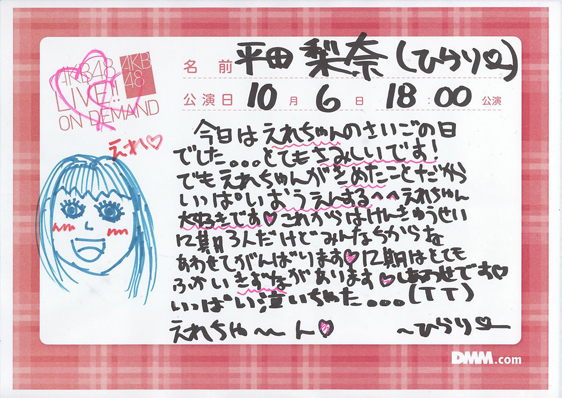 AKB48
LIVE!!
ON DEMAND
AKB
48
名前 平田 梨奈 (ひらりー)
公演日 10月 6日 18:00 公演
えれ♡
今日はえれちゃんのさいごの日
でした...とてもさみしいです!
でもえれちゃんがきめたことだから
いっぱいおうえんする^^えれちゃん
大好きです♡これからはけんきゅうせい
12期3人だけどみんなちからを
あわせてがんばります♡12期はとても
ふかいきずながあります♡しあわせです♡
いっぱい泣いちゃた...(TT)
えれちゃ〜ん♡
〜ひらりー
DMM.com